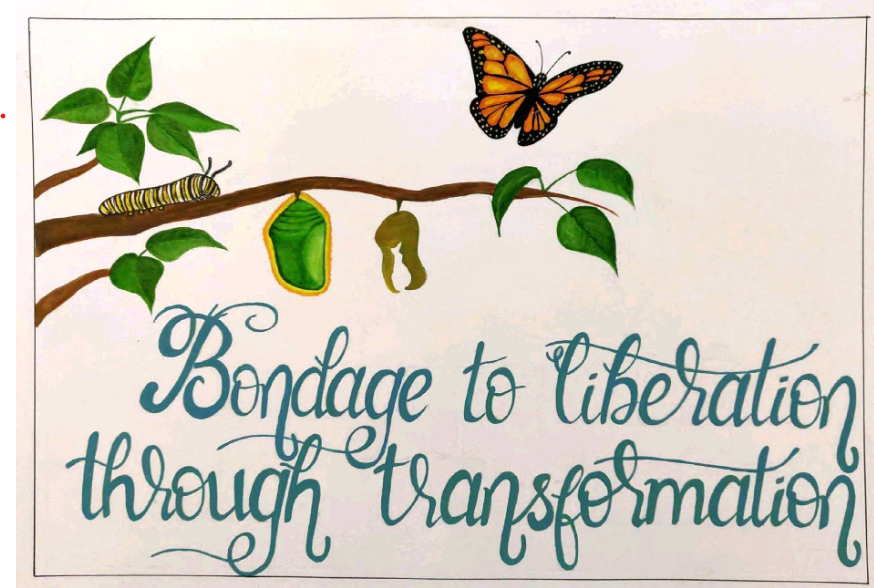 Bondage to liberation
through transformation